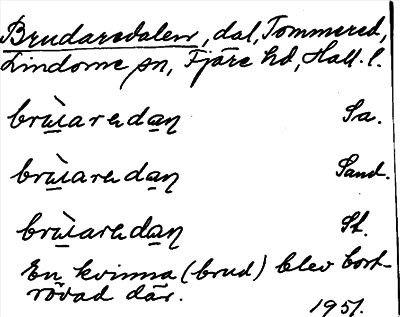 Brudaredalen, dal, Tommered,
Lindome sn, Fjäre hd, Hall. l.
brùaradaŋ Sa.
brùaradaŋ Sand.
brùaradaŋ St.
En kvinna (brud) blev bort-
rövad där.
1951.